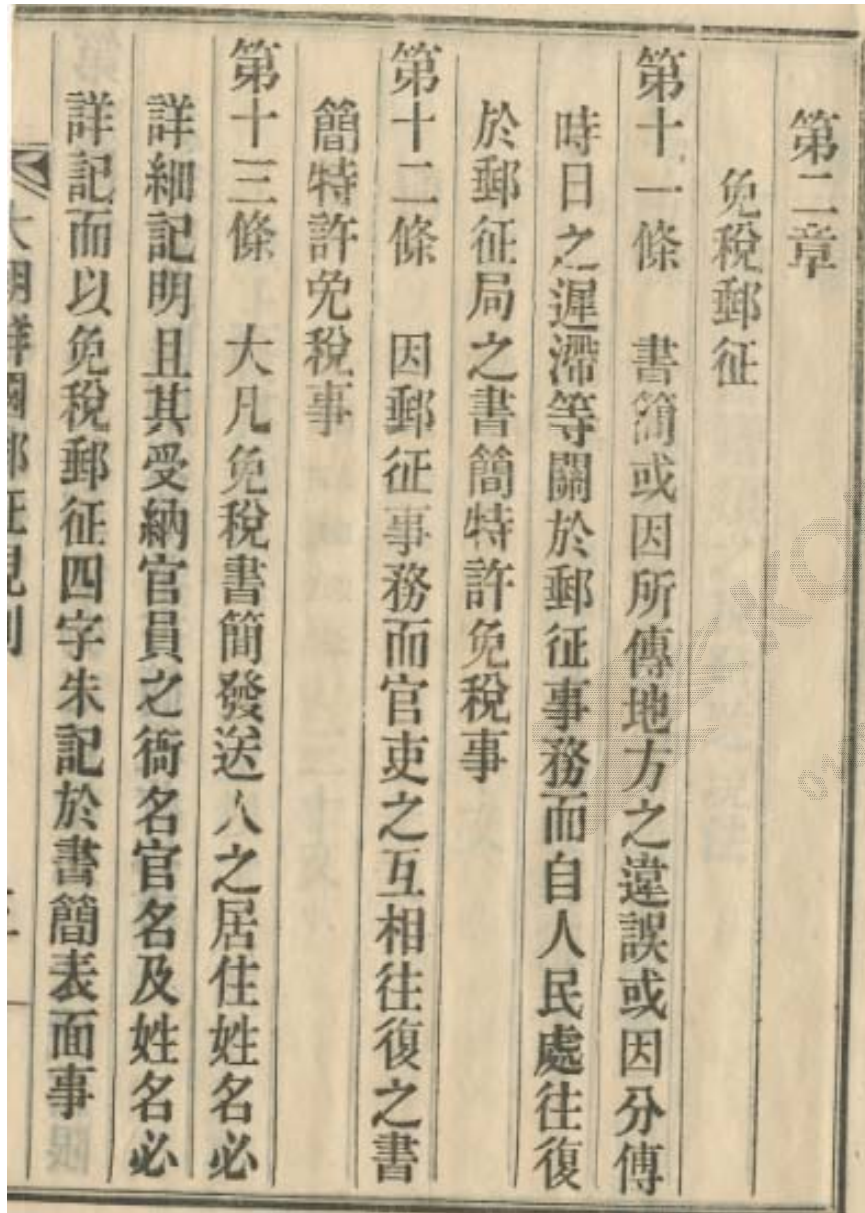 第二章
免稅郵征
第十一條　書簡或因所傳地方之違誤或因分傳
時日之遲滯等關於郵征事務而自人民處往復
於郵征局之書簡特許免稅事
第十二條　因郵征事務而官吏之互相往復之書
簡特許免稅事
第十三條　大凡免稅書簡發送人之居住姓名必
詳細記明且其受納官員之銜名官名及姓名必
詳記而以免稅郵征四字朱記於書簡表面事
大朝鮮國郵征規則